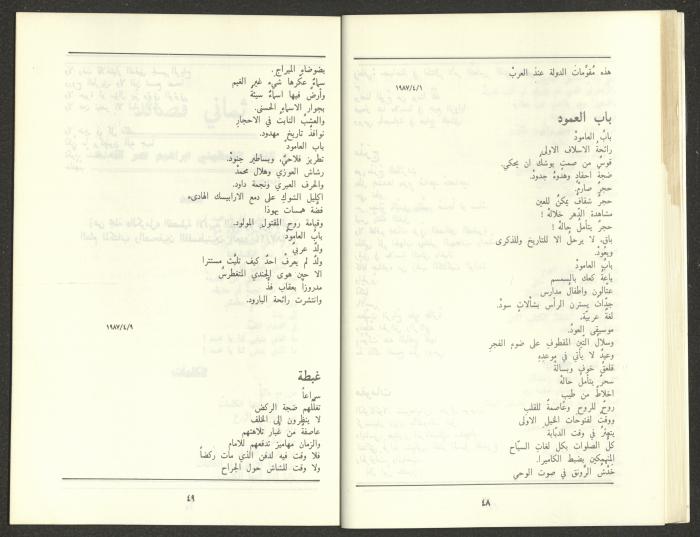 هذه مُقوِّماتُ الدولة عندَ العربْ
١٩٨٧/٤/١
باب العمود
بابُ العامودْ
رائحةُ الاسلاف الاولىٰ
قوسٌ من صمتٍ يوشكُ ان يحكي.
ضجةُ احفادٍ وهدوءُ جدودْ.
حجرٌ صارمْ.
حجرٌ شفافٌ يمكنُ للعينِ
مشاهدةُ الدّهرِ خلالهْ !
حجرٌ يتأملُ حالهْ !
باقٍ، لا يرحلُ الا للتاريخِ وللذكرى
ويعودْ.
بابُ العامودْ
باعةُ كعك بالسمسم
عتّالون واطفالُ مدارس
جدّاتٌ يسترن الرأس بشالاتٍ سودْ.
لغةٌ عربيّة.
موسيقى العودْ.
وسلالُ التّين المقطوفِ على ضوء الفجرِ
وعيدٌ لا يأتي في موعدِهِ
قلعةُ خوفٍ وبسالةْ
سحرٌ يتأملُ حالهْ
اخلاطٌ من طيبٍ
روحٌ للروحِ وعاصمةٌ للقلبِ
ووقتٌ لفتوحات الخيل الاولى
يتعثّرُ في وقت الدبّابةْ
كلُّ الصلوات بكل لغات السيّاح
المنهمكين بضبط الكاميرا.
خَدْشُ الرّونق في صوت الوحي
٤٨
بضوضاء الميراج.
سماءٌ عكّرها شيءٌ غيرُ الغيم
وارضٌ فيها اسماءٌ سيئةٌ
بجوار الاسماءِ الحسنى.
والعشبُ النابتُ في الاحجار
نوافذُ تاريخٍ مهدود.
بابُ العامودْ
تطريزٌ فلاحيٌّ، وبساطيرُ جنودْ.
رشاش العوزي وهلالُ محمدْ
والحرف العبري ونجمة داود.
اكليل الشوكِ على دمع الارابيسك الهادىء
فضّة همسات يهوذا
وقيامة روح المقتول المولود.
بابُ العامودْ
ولدٌ عربيٌّ
ولدٌ لم يعرفْ احدٌ كيف تلبّثَ مستترا
الا حين هوى الجندي المتغطرسُ
مدروزاً بعقابٍ فذّ
وانتشرت رائحة البارود.
١٩٨٧/٤/٩
غبطة
سراعاً
تغلّفهم ضجة الركض
لا ينظرون الى الخلف
عاصفةٌ من غبار تلاهثهم
والزمان مهاميز تدفعهم للامام
فلا وقت فيه لدفن الذي مات ركضاً
ولا وقت للشاش حول الجراح
٤٩